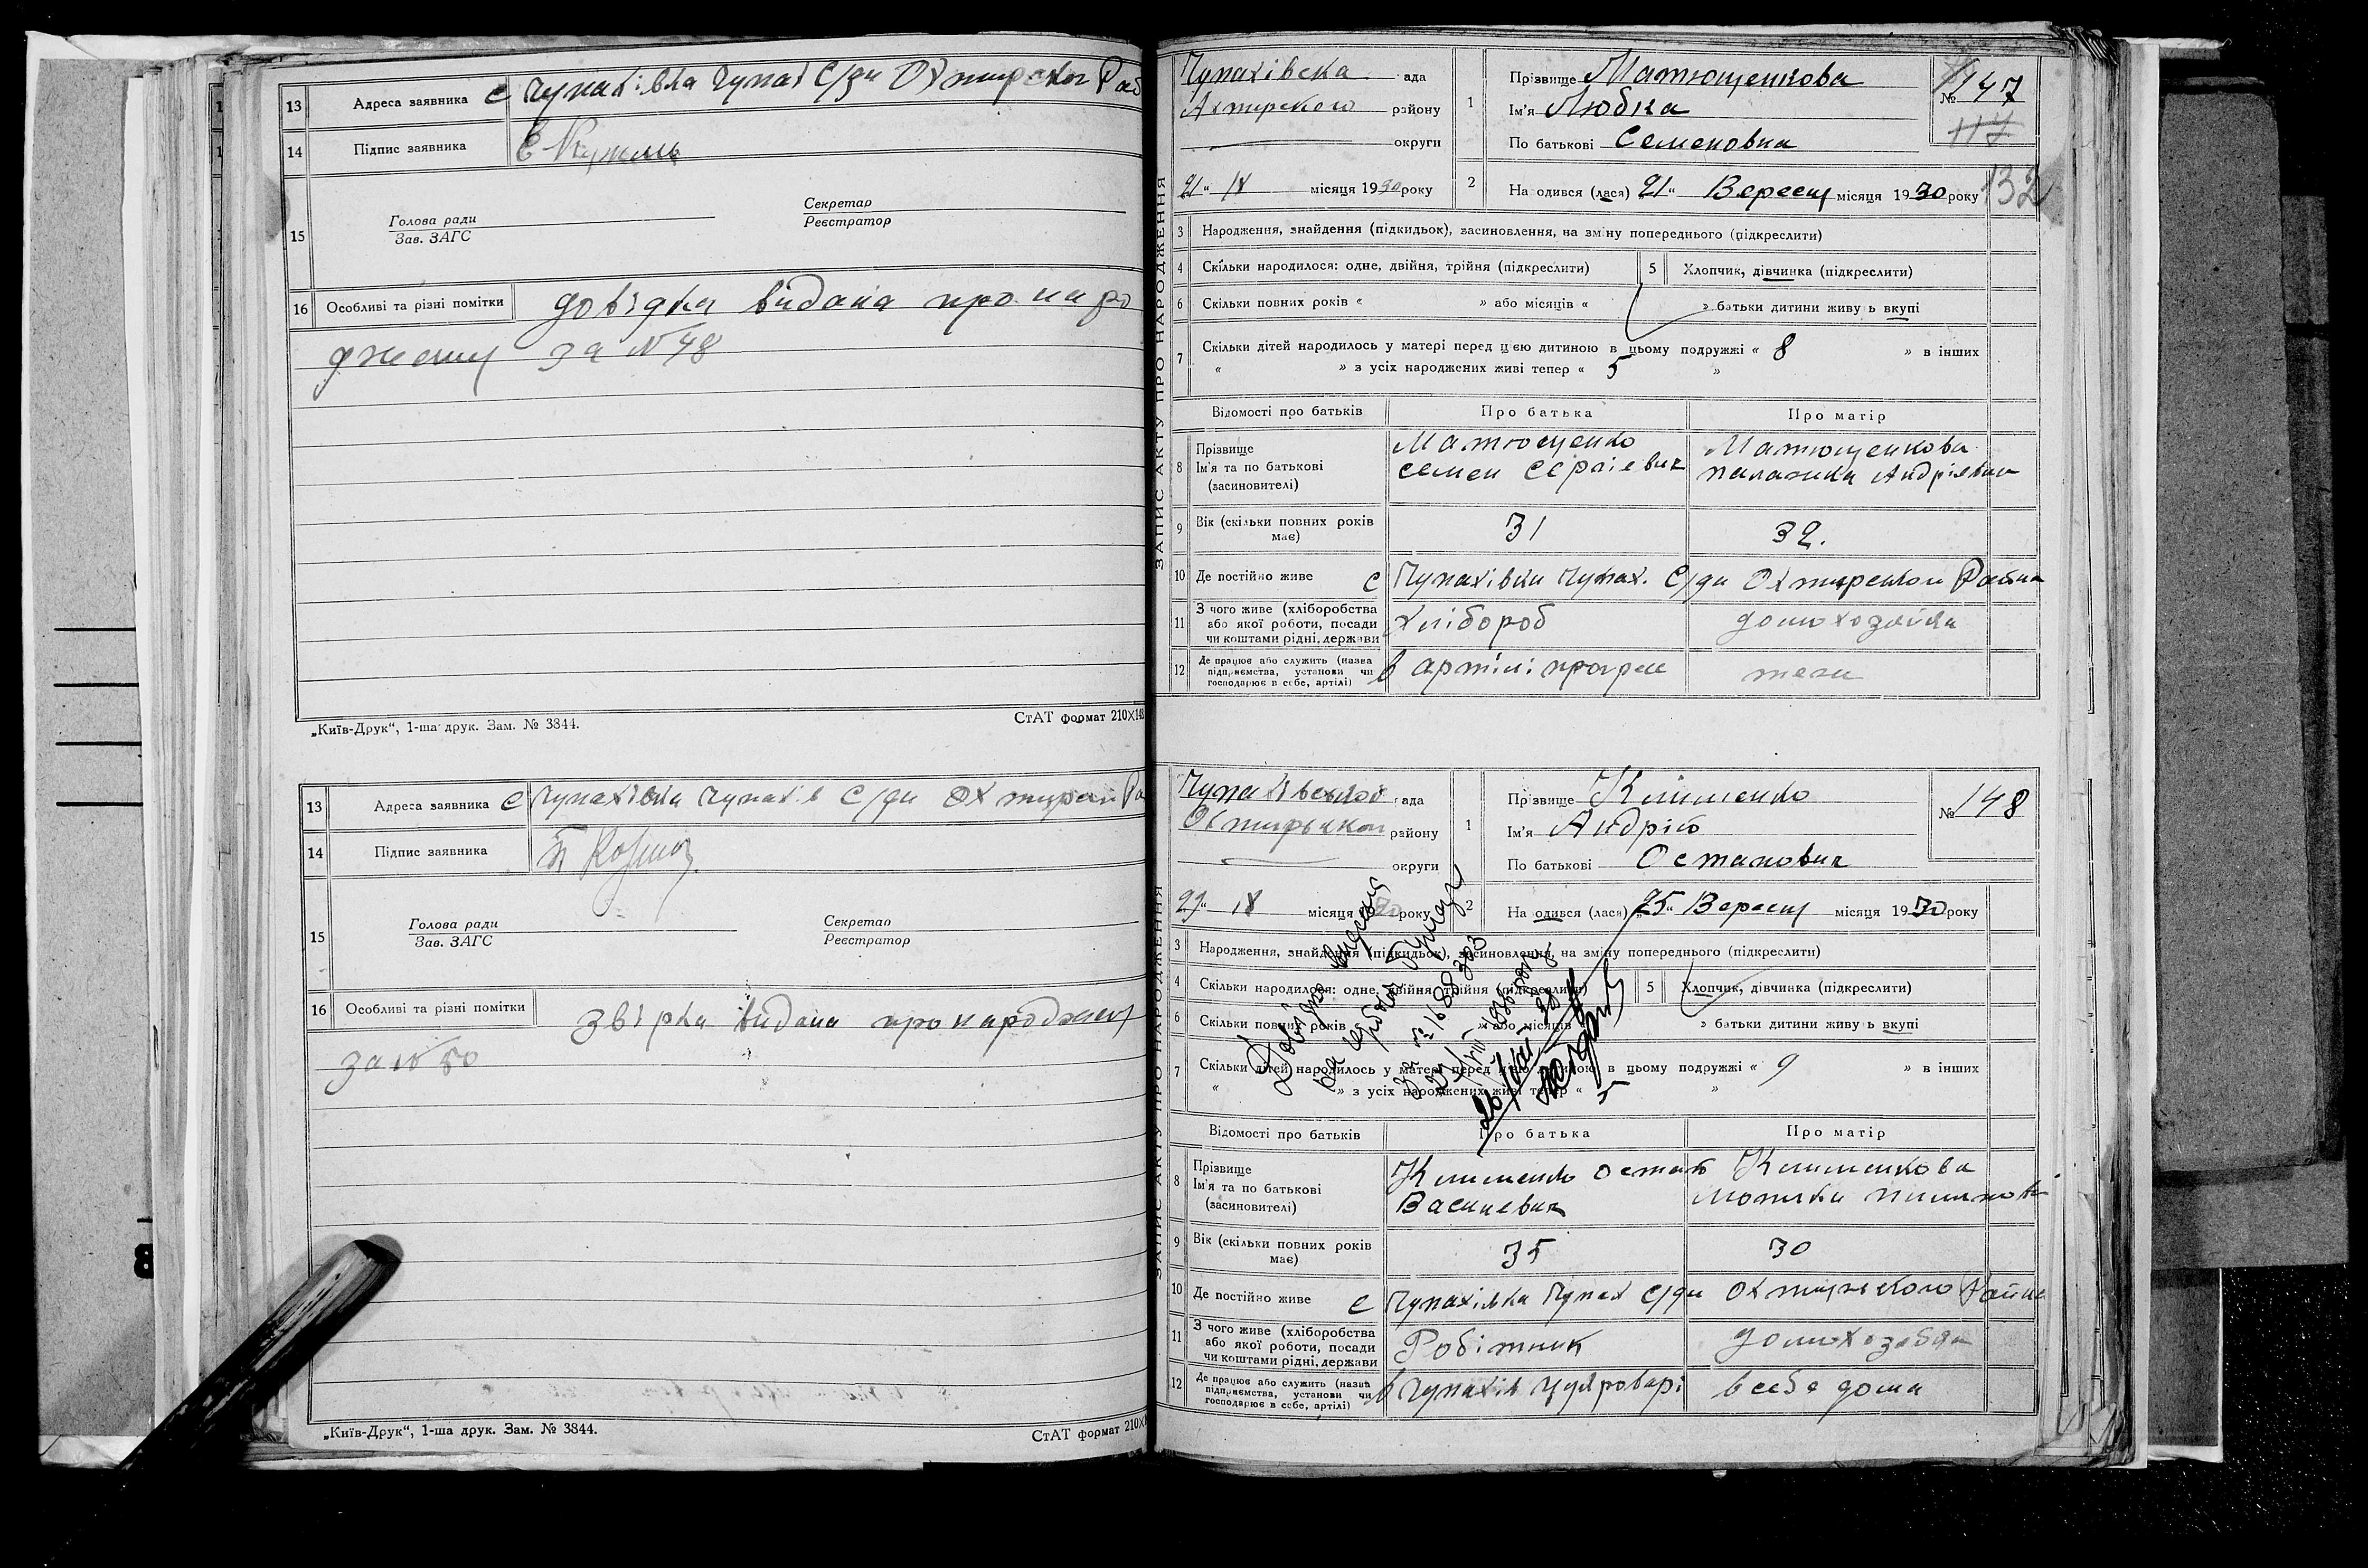 13 Адреса заявника с Чупахівка Чупах С/ди Охтирског Рай
14 Підпис заявника Є
15 Голова ради Секретар
Зав. ЗАГС Реєстратор
16 Особливі та різні помітки довідка видана про наро
дженя за № 48
„Київ-Друк“, 1-ша друк. Зам. № 3844. СтАТ формат 210×148
13 Адреса заявника с Чупахівка Чупахів С/ди Охтирск Ра
14 Підпис заявника
15 Голова ради Секретар
Зав. ЗАГС Реєстратор
16 Особливі та різні помітки видана про народжен
за № 50
„Київ-Друк“, 1-ша друк. Зам. № 3844. СтАТ формат 210×1
ЗАПИС АКТУ ПРО НАРОДЖЕННЯ
Чупахівска рада
Ахтирского району
округи
21 IX місяця 1930 року
1 Прізвище Матющенкова
Ім'я Любка
По батькові Семеновна
№ 147
117
132
2 На одився (лася) „21“ Вересня місяця 1930 року
3 Народження, знайдення (підкидьок), засиновлення, на зміну попереднього (підкреслити)
4 Скільки народилося: одне, двійня, трійня (підкреслити) 5 Хлопчик, дівчинка (підкреслити)
6 Скільки повних років « » або місяців « » батьки дитини живуть вкупі
7 Скільки дітей народилось у матері перед цією дитиною в цьому подружжі « 8 » в інших
« » з усіх народжених живі тепер « 5 »
Відомості про батьків Про батька Про матір
8 Прізвище Ім'я та по батькові (засиновителі) Матющенко Семен Сергіевич Матющенкова Палажка Андріявна
9 Вік (скільки повних років має) 31 32.
10 Де постійно живе с Чупахівки Чупах. С/ди Охтирског Района
11 З чого живе (хліборобства або якої роботи, посади чи коштами рідні, держави хлібороб домохозяйка
12 Де працює або служить (назва підприємства, установи чи господарює в себе, артілі) в артілі тежи
ЗАПИС АКТУ ПРО НАРОДЖЕННЯ
Чупахівской рада
Охтирьског району
округи
29 IX місяця 1930 року
1 Прізвище Клименко
Ім'я Андрій
По батькові Остапович
№ 148
2 На одився (лася) „25“ Вересня місяця 1930 року
3 Народження, знайдення (підкидьок), засиновлення, на зміну попереднього (підкреслити)
4 Скільки народилося: одне, двійня, трійня (підкреслити) 5 Хлопчик, дівчинка (підкреслити)
6 Скільки повних років « » або місяців « » батьки дитини живуть вкупі
7 Скільки дітей народилось у матері перед цією дитиною в цьому подружжі « 9 » в інших
« » з усіх народжених живі тепер « 5 »
Довідка видана
Відомості про батьків Про батька Про матір
8 Прізвище Ім'я та по батькові (засиновителі) Клименко Остап Василевич Клименкова
9 Вік (скільки повних років має) 35 30
10 Де постійно живе с Чупахівка Чупах С/ди Охтирького Района
11 З чого живе (хліборобства або якої роботи, посади чи коштами рідні, держави Робітник домохозяйка
12 Де працює або служить (назва підприємства, установи чи господарює в себе, артілі) в Чупахів Цукроварі в себе дома